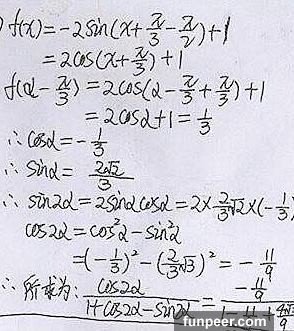 ) f(x)=-2sin(x+π/3-π/2)+1
=2cos(x+π/3)+1
f(α-π/3)=2cos(α-π/3+π/3)+1
=2cosα+1=1/3
∴ cosα=-1/3
∴ sinα=2√2/3
∴ sin2α=2sinαcosα=2×2/3√2×(-1/3
cos2α=cos²α-sin²α
=(-1/3)²-(2/3√3)²=-11/9
∴ 所求为: cos2α/(1+cos2α-sin2α)=(-11/9)/(1-11/9+4√
funpeer.com